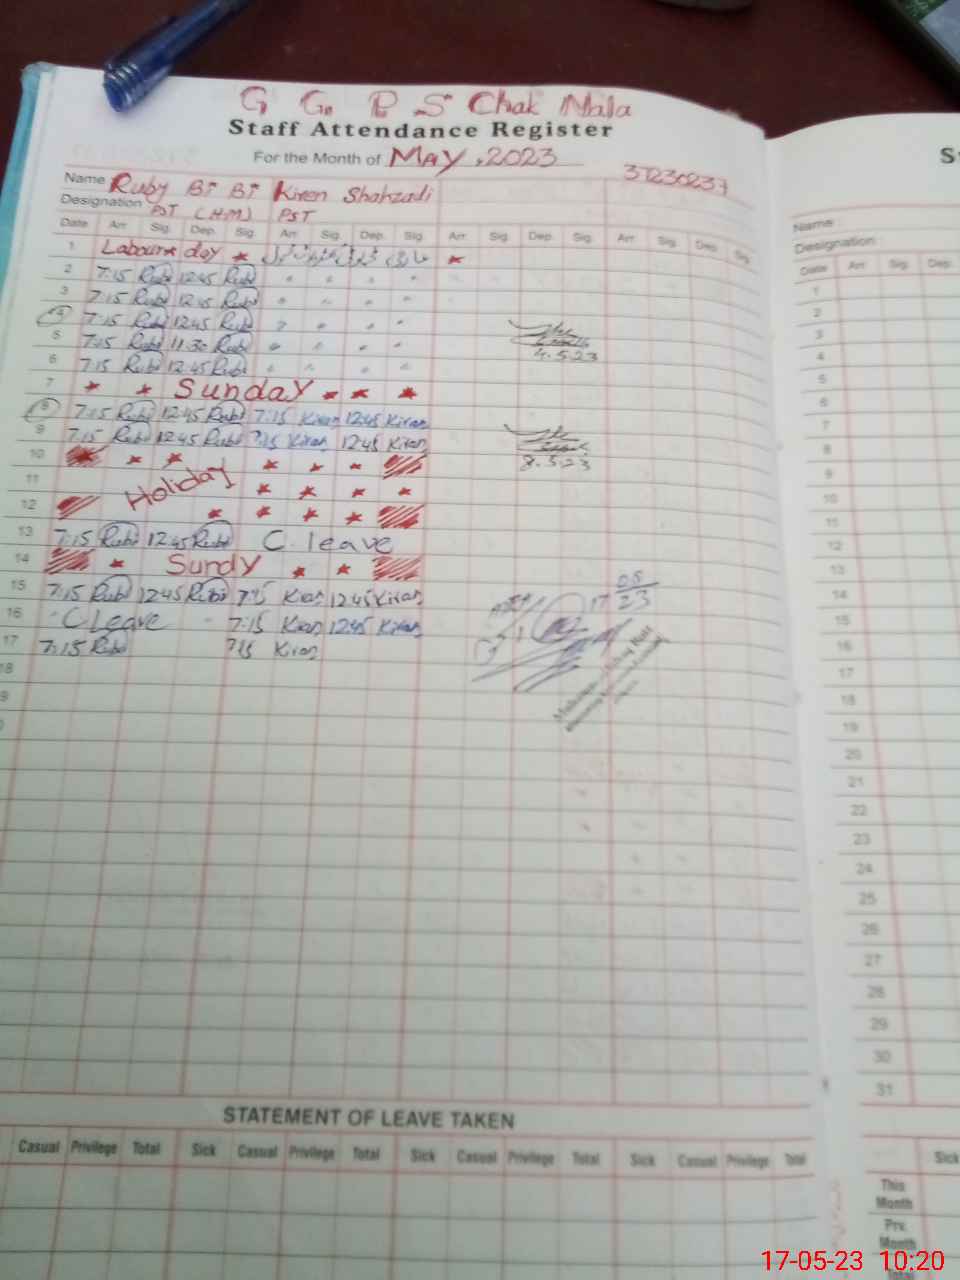 G G P S Chak Nala
Staff Attendance Register
For the Month of MAY, 2023
37230237
Name Ruby Bi Bi Kiren Shahzadi
Designation PST (HM) PST
Date Arr. Sig. Dep. Sig. Arr. Sig. Dep. Sig. Arr. Sig. Dep. Sig. Arr. Sig. Dep. Sig.
1 Labour day
2 7:15 Rubi 12:45 Rubi
3 7:15 Rubi 12:45 Rubi
4 7:15 Rubi 12:45 Rubi
5 7:15 Rubi 11:30 Rubi
4.5.23
6 7:15 Rubi 12:45 Rubi
7 Sunday
8 7:15 Rubi 12:45 Rubi 7:15 Kiran 12:45 Kiran
9 7:15 Rubi 12:45 Rubi 7:15 Kiran 12:45 Kiran
8.5.23
10
11 Holiday
12
13 7:15 Rubi 12:45 Rubi C. leave
14 Sundy
15 7:15 Rubi 12:45 Rubi 7:15 Kiran 12:45 Kiran
17 05/23
16 C Leave 7:15 Kiran 12:45 Kiran
17 7:15 Rubi 7:15 Kiran
18
STATEMENT OF LEAVE TAKEN
Casual Privilege Total Sick Casual Privilege Total Sick Casual Privilege Total Sick Casual Privilege Total
Name
Designation
Date Arr. Sig. Dep.
1
2
3
4
5
6
7
8
9
10
11
12
13
14
15
16
17
18
19
20
21
22
23
24
25
26
27
28
29
30
31
Sick
This Month
Prv. Month
Total
17-05-23 10:20